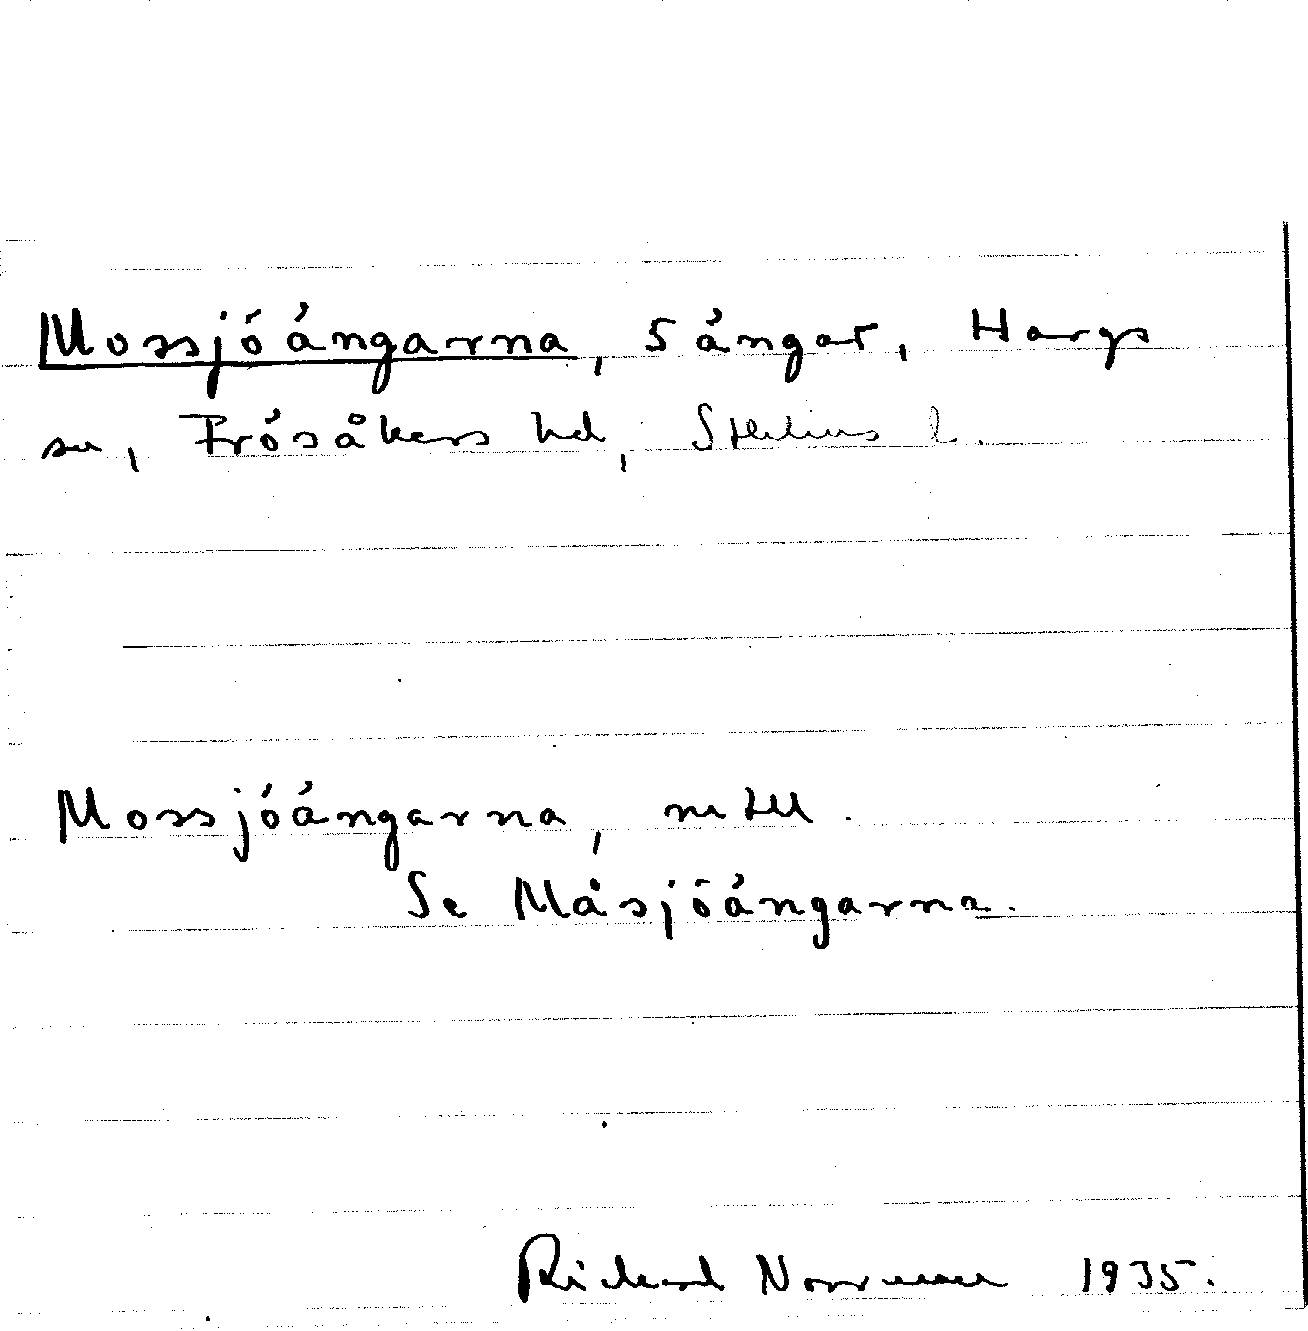 Mossjöängarna, 5 ängar, Hargs
sn, Frösåkers hd, Sthlms l.
Mossjöängarna, mtll.
Se Måsjöängarna.
Richard Norrman 1935.